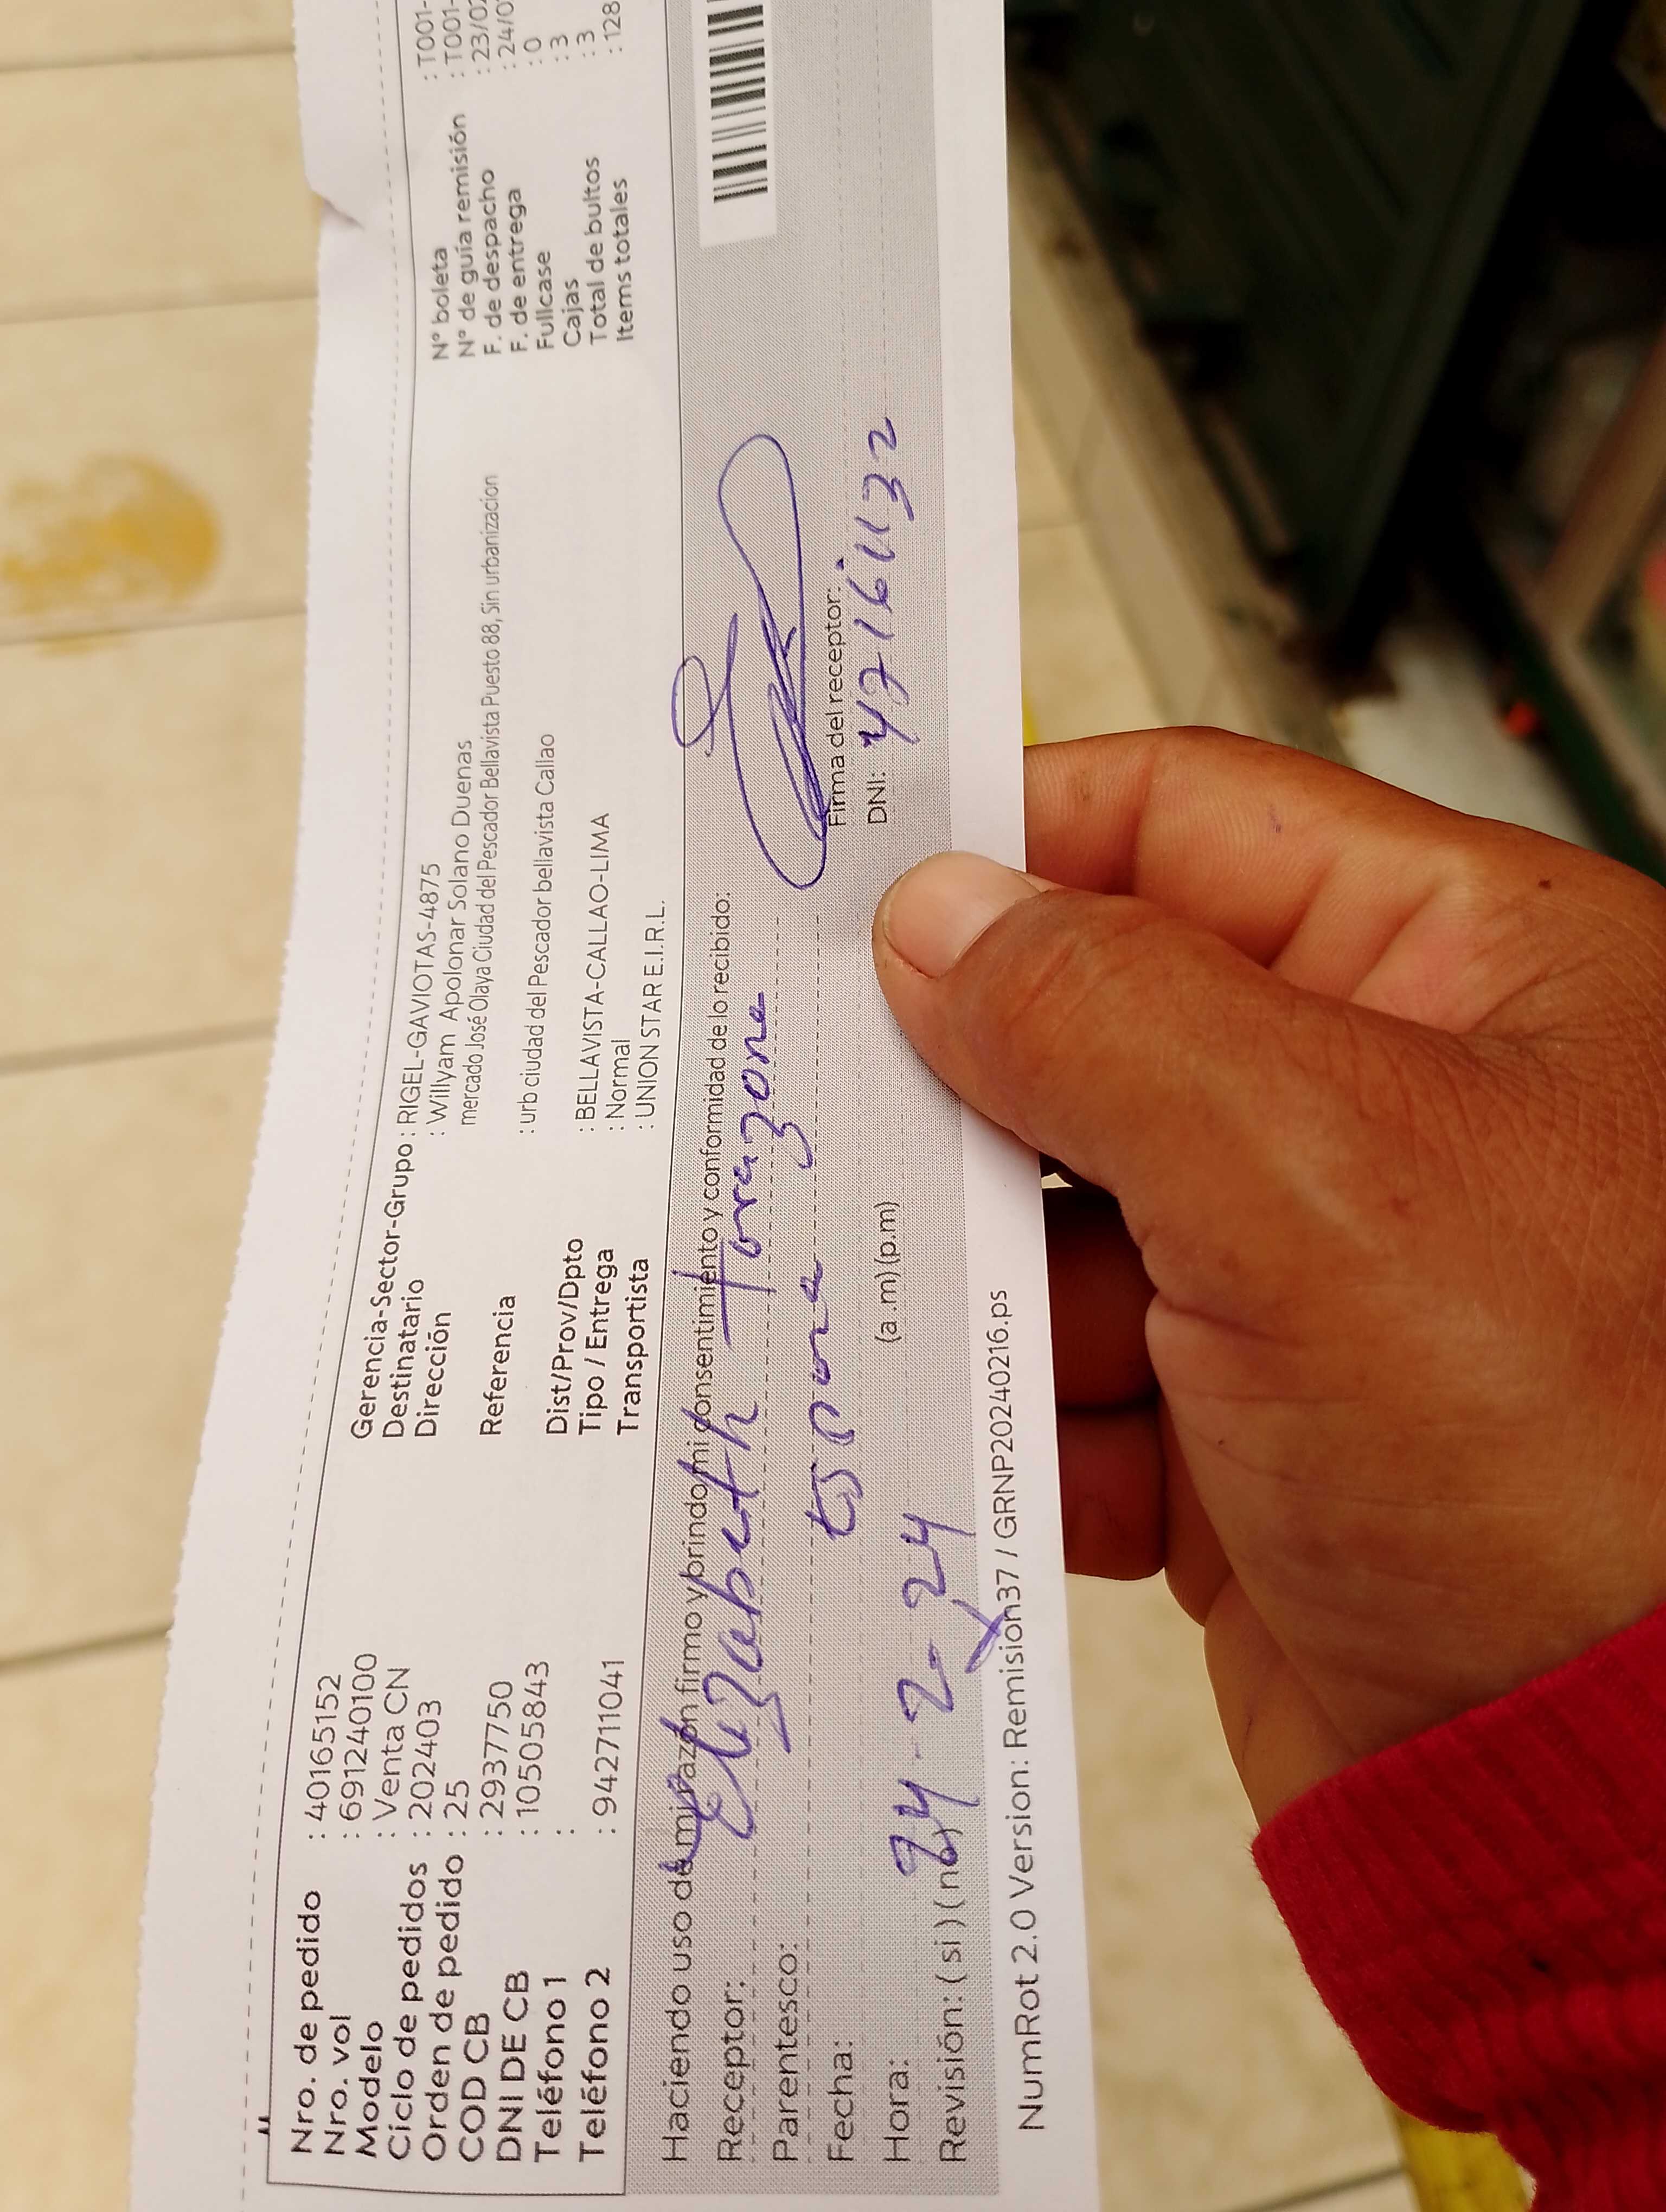 Nro. de pedido : 40165152
Nro. vol : 691240100
Modelo : Venta CN
Ciclo de pedidos : 202403
Orden de pedido : 25
COD CB : 2937750
DNI DE CB : 10505843
Teléfono 1 :
Teléfono 2 : 942711041
Gerencia-Sector-Grupo : RIGEL-GAVIOTAS-4875
Destinatario : Willyam Apolonar Solano Duenas
Dirección mercado José Olaya Ciudad del Pescador Bellavista Puesto 88, Sin urbanizacion
Referencia : urb ciudad del Pescador bellavista Callao
Dist/Prov/Dpto : BELLAVISTA-CALLAO-LIMA
Tipo / Entrega : Normal
Transportista : UNION STAR E.I.R.L.
N° boleta : T001-
N° de guía remisión : T001-
F. de despacho : 23/0
F. de entrega : 24/0
Fullcase : 0
Cajas : 3
Total de bultos : 3
Items totales : 128
Haciendo uso de mi razón firmo y brindo mi consentimiento y conformidad de lo recibido:
Receptor: Elizabeth
Parentesco:
Fecha: 24-2-24
Hora: (a.m) (p.m)
Revisión: (si) (no)
Firma del receptor:
DNI:
NumRot 2.0 Version: Remision37 / GRNP20240216.ps